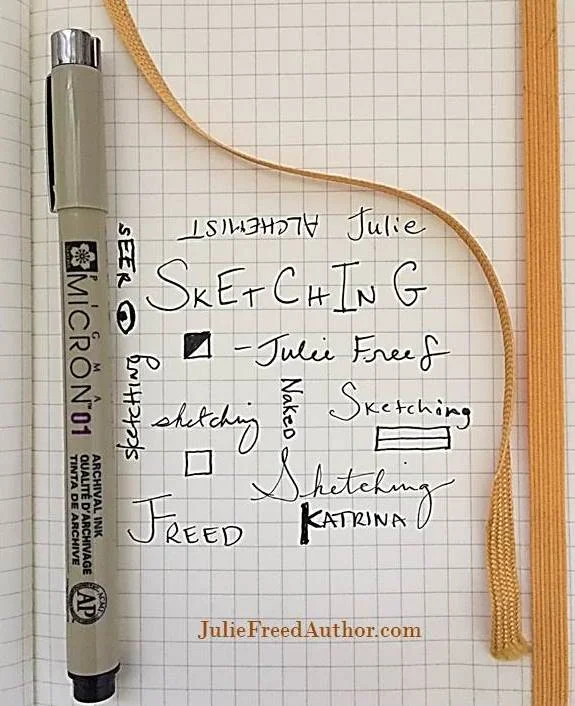 ALCHEMIST Julie
SEER
SKETCHING
- Julie Freed
sketching
Naked
sketching
Sketching
Sketching
FREED
KATRINA
PIGMA
MICRON™ 01
ARCHIVAL INK
QUALITÉ D'ARCHIVAGE
TINTA DE ARCHIVE
AP
JulieFreedAuthor.com